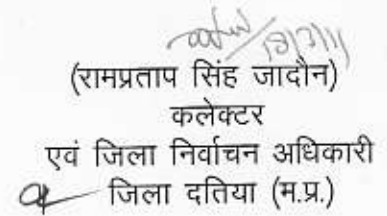 (रामप्रताप सिंह जादौन)
कलेक्टर
एवं जिला निर्वाचन अधिकारी
जिला दतिया (म.प्र.)